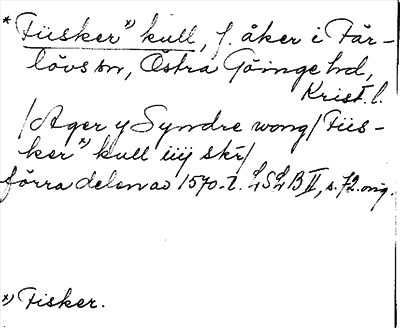 * Tüsker" x) kull, f. åker i Fär-
lövs sn, Östra Göinge hd,
Krist. l.
/Ager y Syndre wong/Tüs-
ker" x) kull iiij skr/
förra delen av 1570-t. LSLB II, s. 72. orig.
x) Fisker.